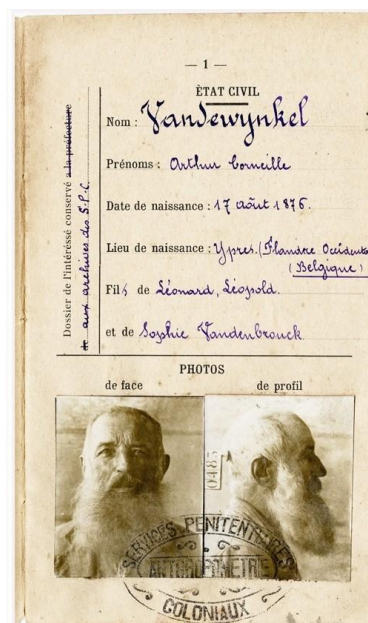 — 1 —
ÈTAT CIVIL
Nom : Vandewynkel
Prénoms : Arthur Corneille
Date de naissance : 17 août 1876.
Lieu de naissance : Ypres. (Flandre Occidenta
(Belgique)
Fils de Léonard, Léopold.
et de Sophie Vandenbrouck
Dossier de l'intéréssé conservé a la préfecture
aux archives des S.P.C.
PHOTOS
de face de profil
0485
SERVICES PENITENTIAIRES
ANTHROPOMETRIE
COLONIAUX